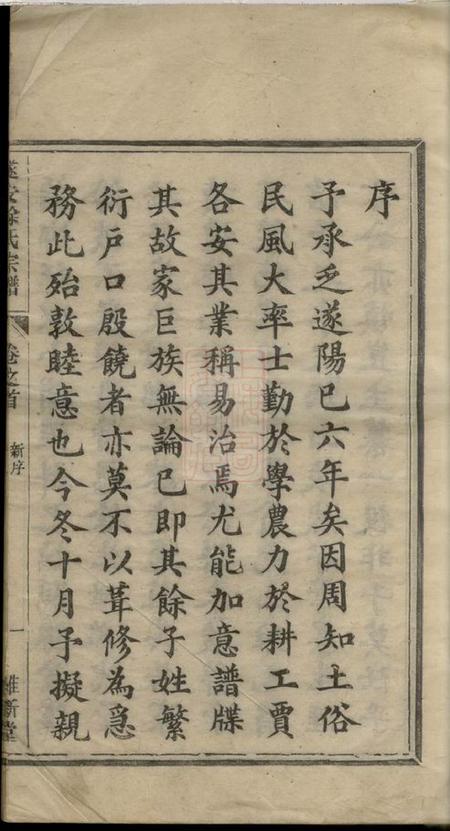 序
予承乏遂陽巳六年矣因周知土俗
民風大率士勤於學農力於耕工賈
各安其業稱易治焉尤能加意譜牒
其故家巨族無論已即其餘子姓繁
衍戶口殷饒者亦莫不以葺修為急
務此殆敦睦意也今冬十月予擬親
遂安徐氏宗譜
卷之首
新序
一
維新堂